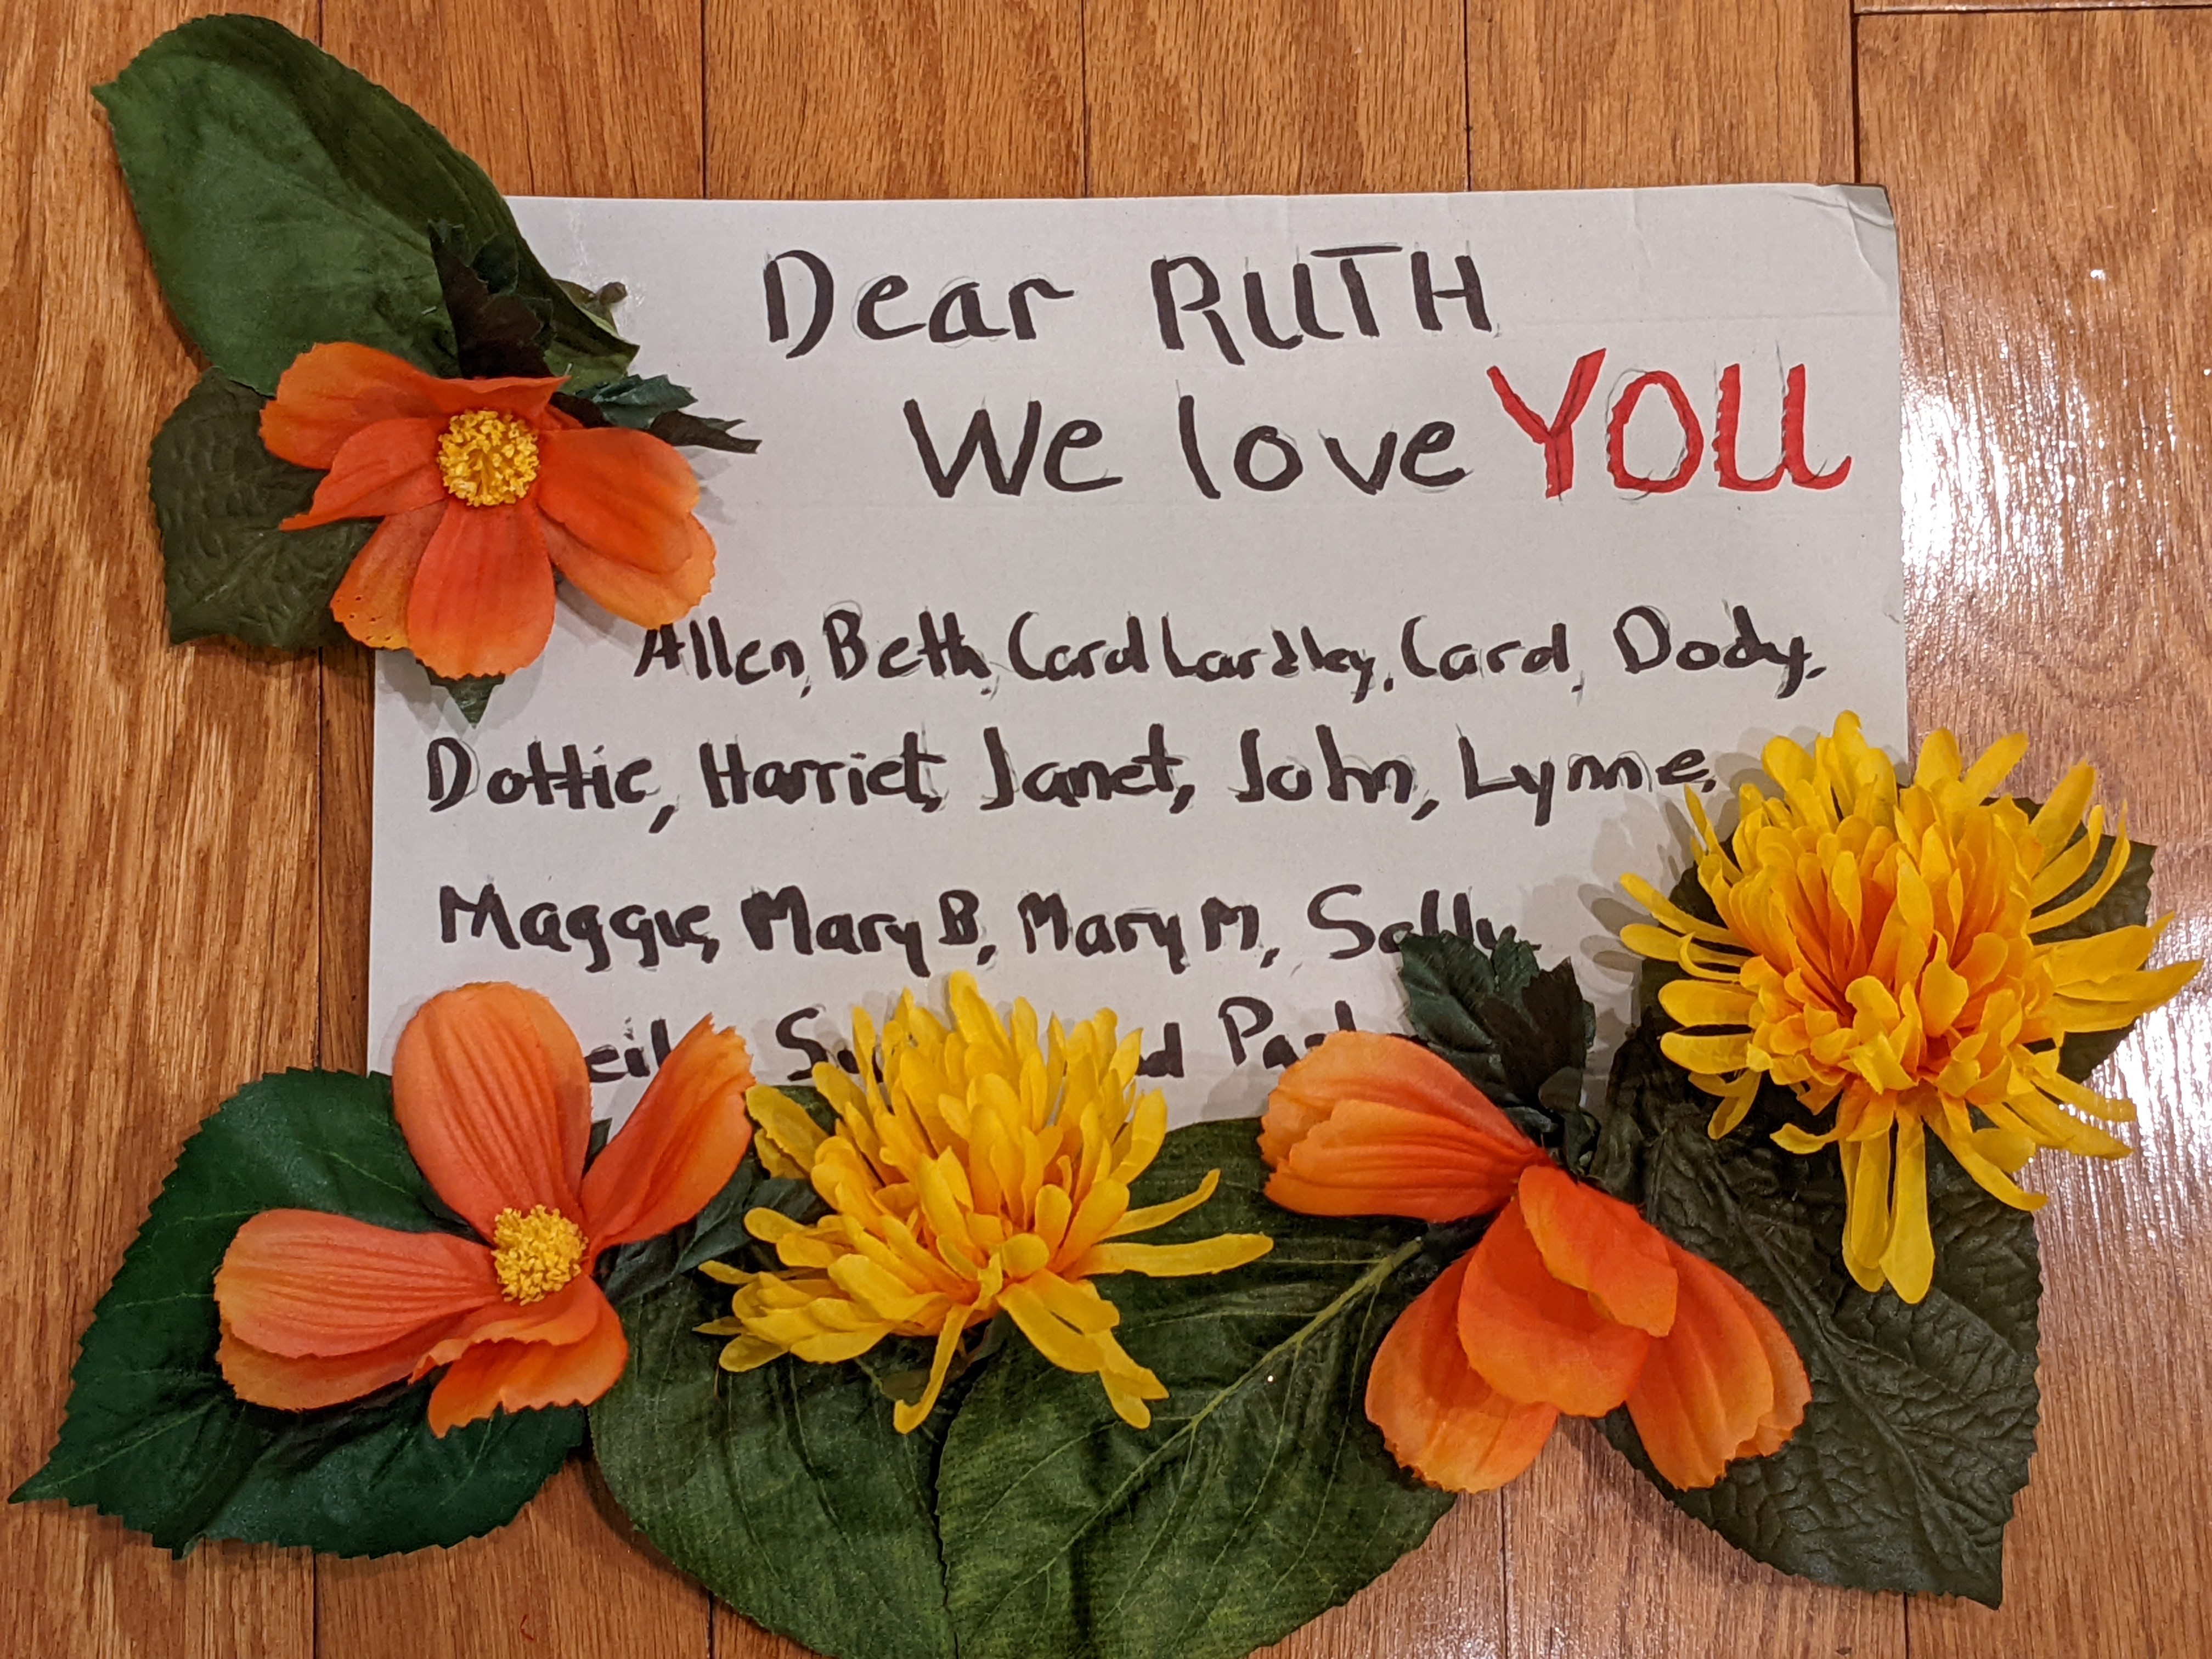 Dear RUTH
We love YOU
Allen, Beth, Carol Lardley, Carol, Dody,
Dottie, Harriet, Janet, John, Lynne,
Maggie, Mary B, Mary M, Sally